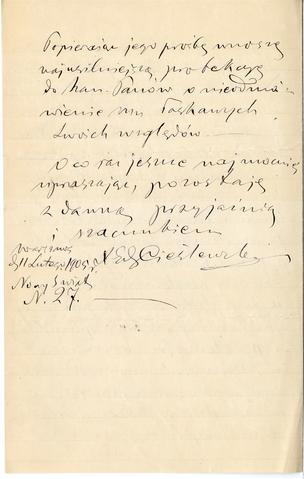 Popierając jego prośbę wnoszę
najusilniejszą protekcję
do Panów o nieodmó-
wienie mu Łaskawych
swoich względów.
O co raz jeszcze najmocniej
upraszając, pozostaję
z dawną przyjaźnią
i szacunkiem
Warszawa
d. 11 Lutego 1905 r.
Nowy Świat
N. 27.